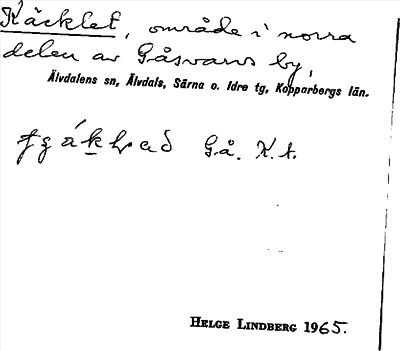 Käcklet, område i norra
delen av Gåsvarvs by,
Älvdalens sn, Älvdals, Särna o. Idre tg, Kopparbergs län.
Gå. K. t.
HELGE LINDBERG 1965.